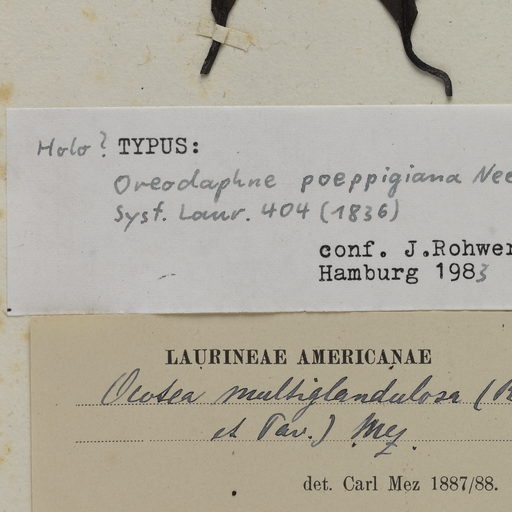 Holo? TYPUS:
Oreodaphne poeppigiana Nee
Syst. Laur. 404 (1836)
conf. J.Rohwer
Hamburg 1983
LAURINEAE AMERICANAE
Ocotea multiglandulosa (R
et Pav.) Mez.
det. Carl Mez 1887/88.